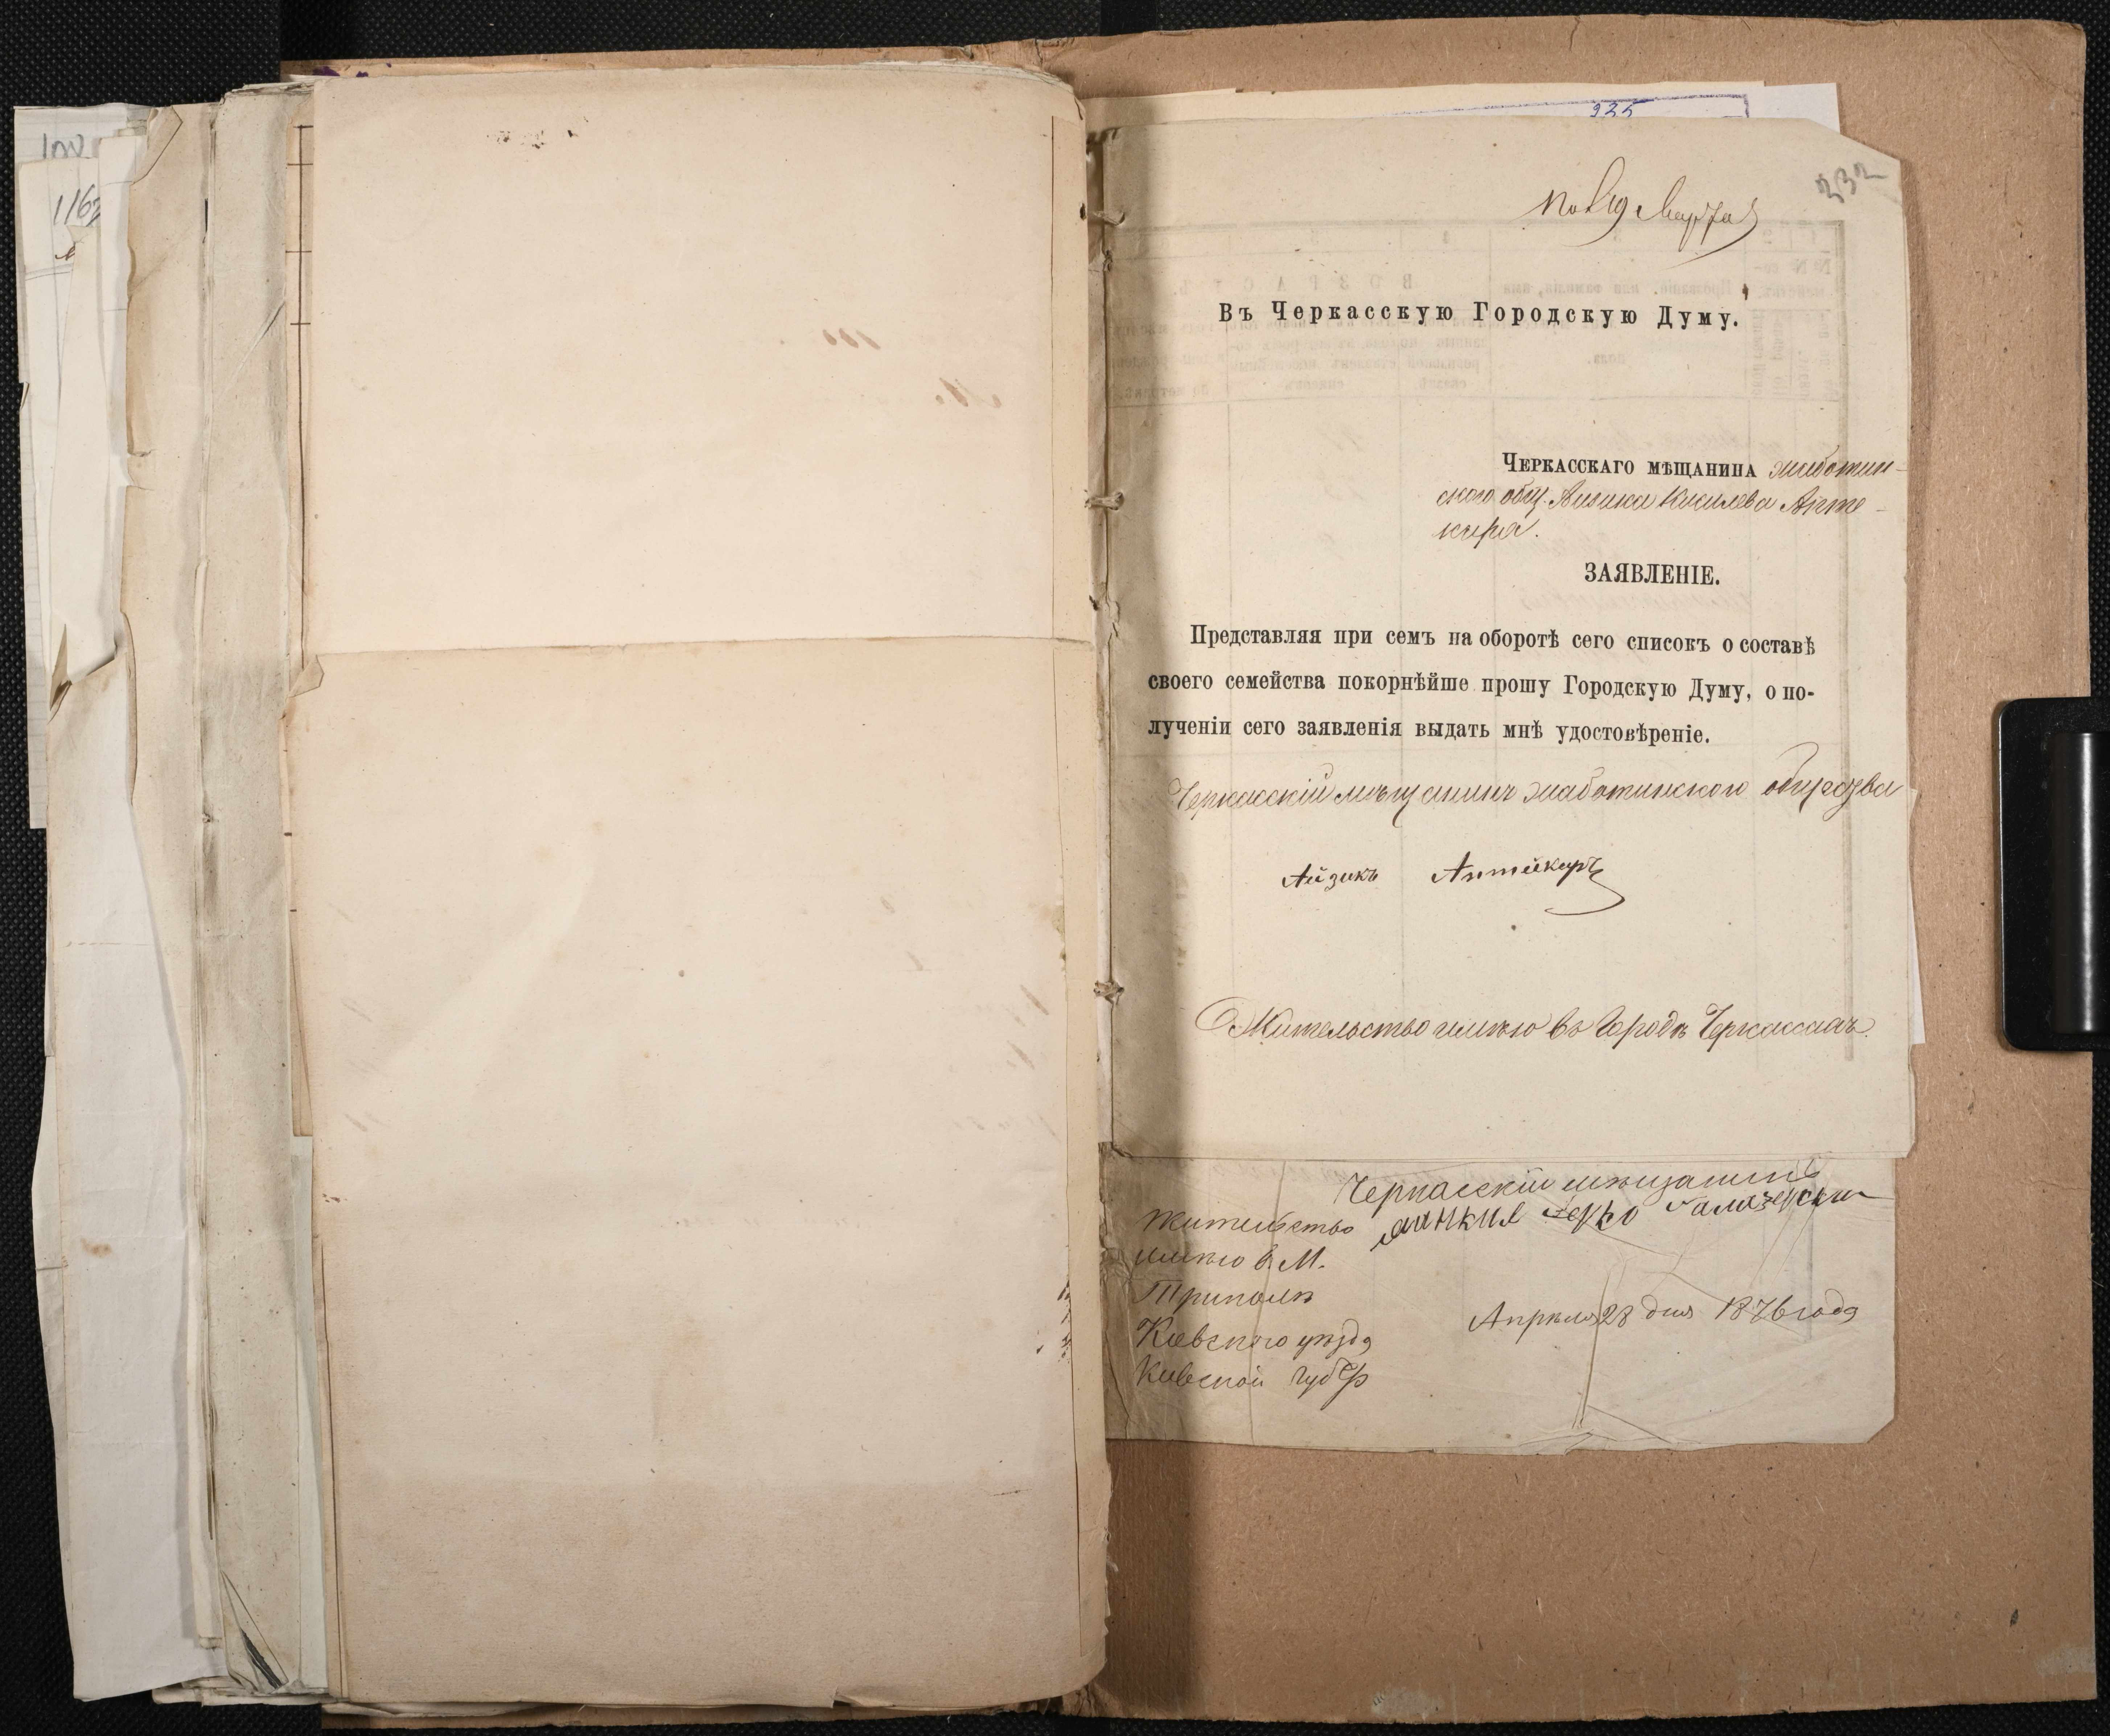 1163
235
232
Марта
Въ Черкасскую Городскую Думу.
Черкасскаго мѣщанина жаботин-
ского общ. Айзика Апте-
каря.
ЗАЯВЛЕНІЕ.
Представляя при семъ на оборотѣ сего списокъ о составѣ
своего семейства покорнѣйше прошу Городскую Думу, о по-
лученіи сего заявленія выдать мнѣ удостовѣреніе.
Черкасскій мѣщанинъ жаботинского общества
Айзикъ Аптейкаръ
Жительство имѣю въ Городѣ Черкассахъ.
Черкасскій мѣщанинъ
Жительство
имѣю в. М.
Триполѣ
Апрѣля 28 дня 1876 года
Киевского уѣзда
Киевской губер